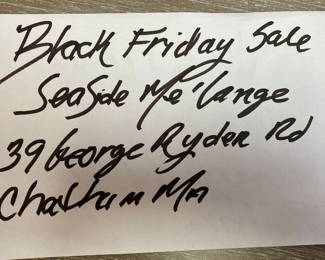 Black Friday Sale
Seaside Me'lange
39 George Ryder Rd
Chatham MA